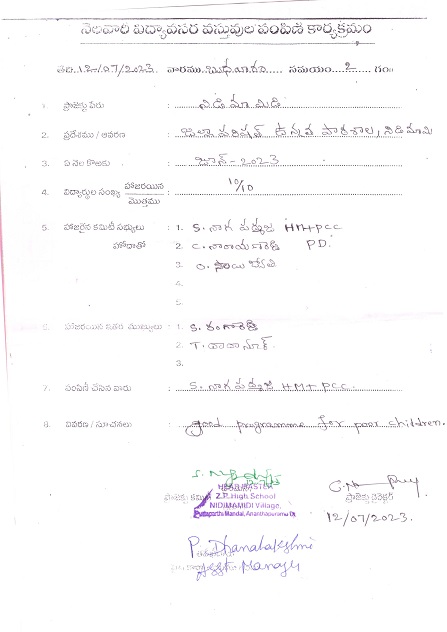 నెలవారి విద్యావసర వస్తువుల పంపిణి కార్యక్రమం
తేది 12/07/2023 వారము బుధవారం సమయం 2 గం॥
1. ప్రాజెక్టు పేరు : నిడిమామిడి
2. ప్రదేశము / ఆవరణ : జిల్లా పరిషత్ ఉన్నత పాఠశాల, నిడిమామి
3. ఏ నెల కొఱకు : జూన్ - 2023
4. విద్యార్థుల సంఖ్య హాజరయిన / మొత్తము : 10/10
5. హాజరైన కమిటీ సభ్యులు : 1. S. నాగ HM+PCC
హోదాతో 2. C. నారాయణ PD.
3. O. సాయి
4.
5.
6. హాజరయిన ఇతర ముఖ్యులు : 1. S.
2. T.
3.
7. పంపిణీ చేసిన వారు : S. నాగ HM+ PCC.
8. వివరణ / సూచనలు : good programme for poor children.
HEADMASTER
ప్రాజెక్టు కమిటీ Z.P. High School ప్రాజెక్టు డైరెక్టర్
NIDIMAMIDI Village,
Puttaparthi Mandal, Ananthapuramu Dt. 12/07/2023.
P. Dhanalakshmi
Asst Manager